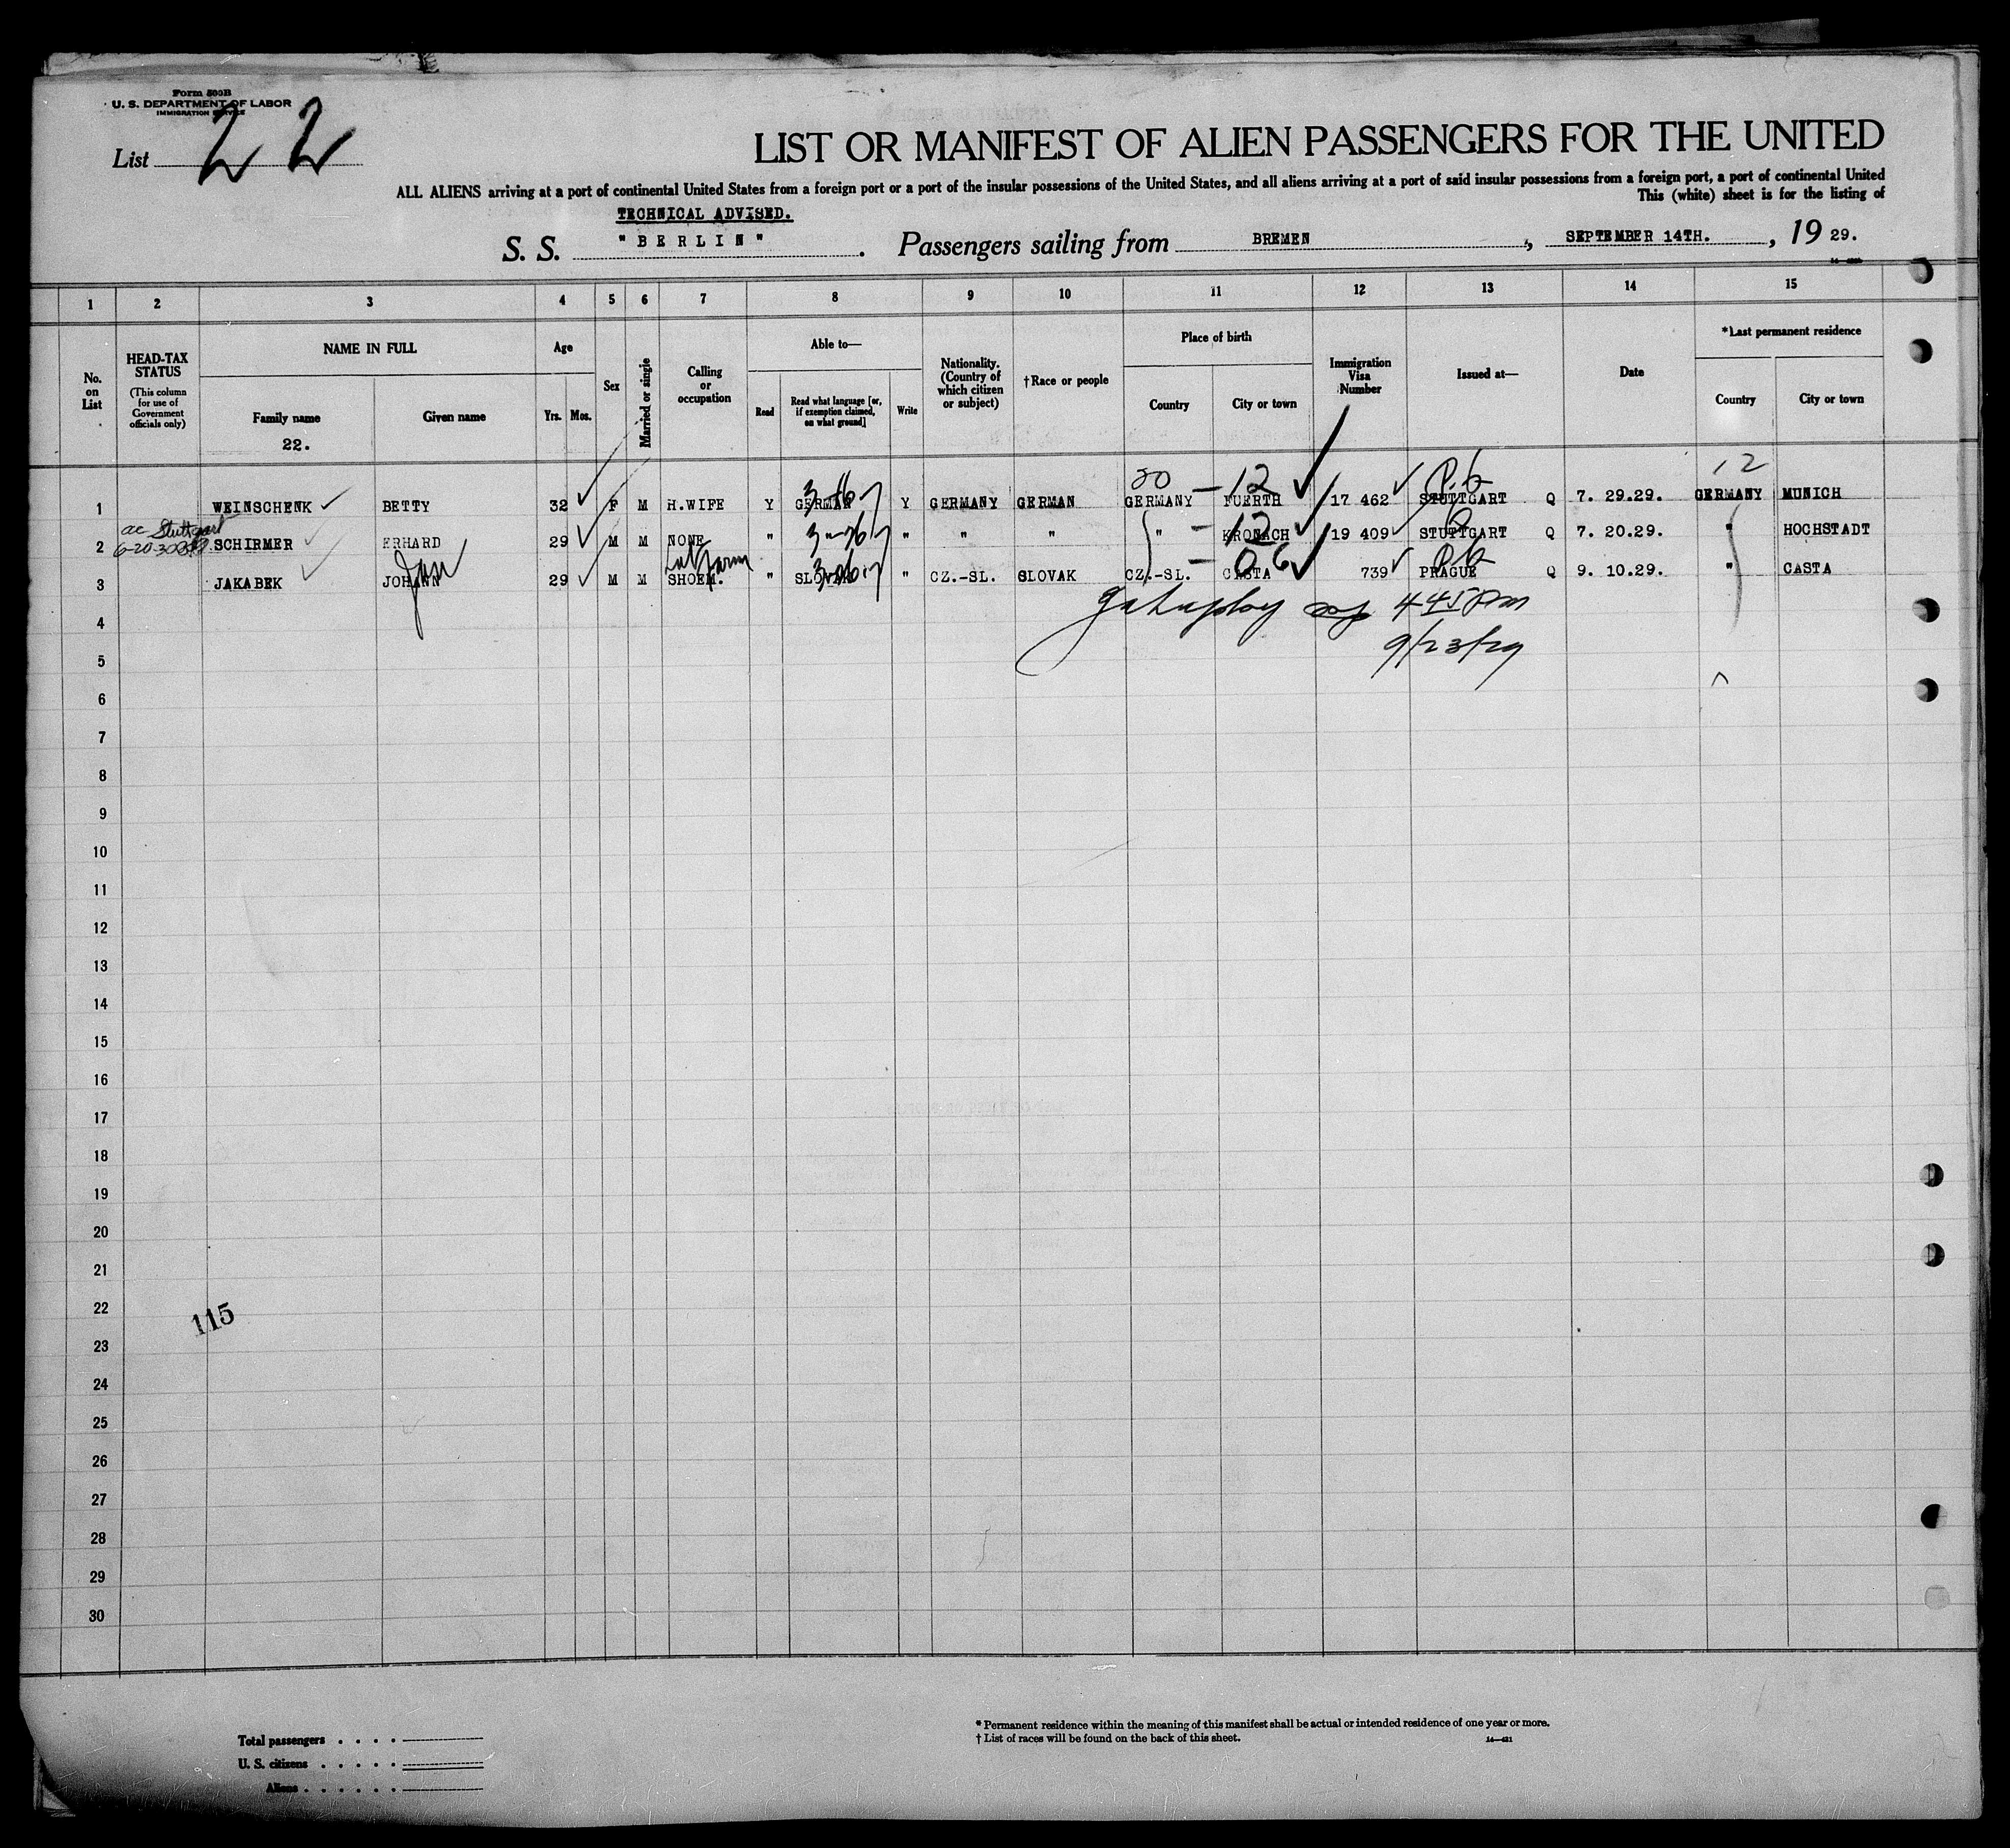 Form 500B
U. S. DEPARTMENT OF LABOR
IMMIGRATION SERVICE
List 22
LIST OR MANIFEST OF ALIEN PASSENGERS FOR THE UNITED
ALL ALIENS arriving at a port of continental United States from a foreign port or a port of the insular possessions of the United States, and all aliens arriving at a port of said insular possessions from a foreign port, a port of continental United
This (white) sheet is for the listing of
TECHNICAL ADVISED.
S. S. "BERLIN". Passengers sailing from BREMEN, SEPTEMBER 14TH., 19 29.
1 2 3 4 5 6 7 8 9 10 11 12 13 14 15
No. on List
HEAD-TAX STATUS
(This column for use of Government officials only)
NAME IN FULL
Family name
22.
Given name
Age
Yrs. Mos.
Sex
Married or single
Calling or occupation
Able to—
Read
Read what language [or, if exemption claimed, on what ground]
Write
Nationality. (Country of which citizen or subject)
†Race or people
Place of birth
Country
City or town
Immigration Visa Number
Issued at—
Date
*Last permanent residence
Country
City or town
20 12 12
1 WEINSCHENK BETTY 32 F M H.WIFE Y GERMAN Y GERMANY GERMAN GERMANY FUERTH 17 462 STUTTGART Q 7. 29.29. GERMANY MUNICH
ac Stuttgart
2 SCHIRMER ERHARD 29 M M NONE " " " " " KRONACH 19 409 STUTTGART Q 7. 20.29. " HOCHSTADT
12
Jan
06
3 JAKABEK JOHANN 29 M M SHOEM. " SLOVAK " CZ.-SL. SLOVAK CZ.-SL. CASTA 739 PRAGUE Q 9. 10.29. " CASTA
4 445 pm
5 9/23/29
6
7
8
9
10
11
12
13
14
15
16
17
18
19
20
21
22
115
23
24
25
26
27
28
29
30
Total passengers . . . .
U. S. citizens . . . . .
Aliens . . . . . .
* Permanent residence within the meaning of this manifest shall be actual or intended residence of one year or more.
† List of races will be found on the back of this sheet.
14—421